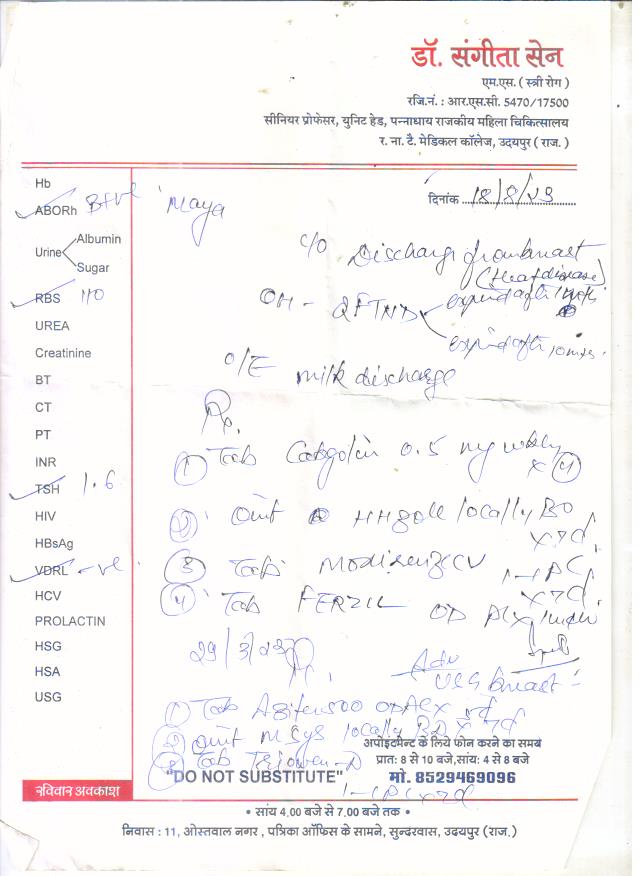 डॉ. संगीता सेन
एम.एस. ( स्त्री रोग )
रजि.नं. : आर.एस.सी. 5470/17500
सीनियर प्रोफेसर, युनिट हेड, पन्नाधाय राजकीय महिला चिकित्सालय
र. ना. टै. मेडिकल कॉलेज, उदयपुर ( राज. )
Hb
ABORh B+ve
Urine Albumin
Sugar
RBS 110
UREA
Creatinine
BT
CT
PT
INR
TSH 1.6
HIV
HBsAg
VDRL -ve
HCV
PROLACTIN
HSG
HSA
USG
रविवार अवकाश
Maya
दिनांक 18/8/23
C/O Discharge from breast
(Heart disease)
OH - 2FTND expired after
expired after 10 mths
O/E milk discharge
Rx
(1) Tab Cabgolin 0.5 mg weekly
x (4)
(2) Oint locally BD
x 7d
(3) Tab CV 1-1 PC
x 7d
(4) Tab OD
29/3/23
Adv
USG breast
(1) Tab 500 OD x
(2) Oint locally BD x 7d
(3) Tab
1-1 PC x 7d
अपोइंटमेन्ट के लिये फोन करने का समय
प्रातः 8 से 10 बजे,सांय: 4 से 8 बजे
"DO NOT SUBSTITUTE" मो. 8529469096
• सांय 4.00 बजे से 7.00 बजे तक •
निवास : 11, ओस्तवाल नगर , पत्रिका ऑफिस के सामने, सुन्दरवास, उदयपुर (राज.)